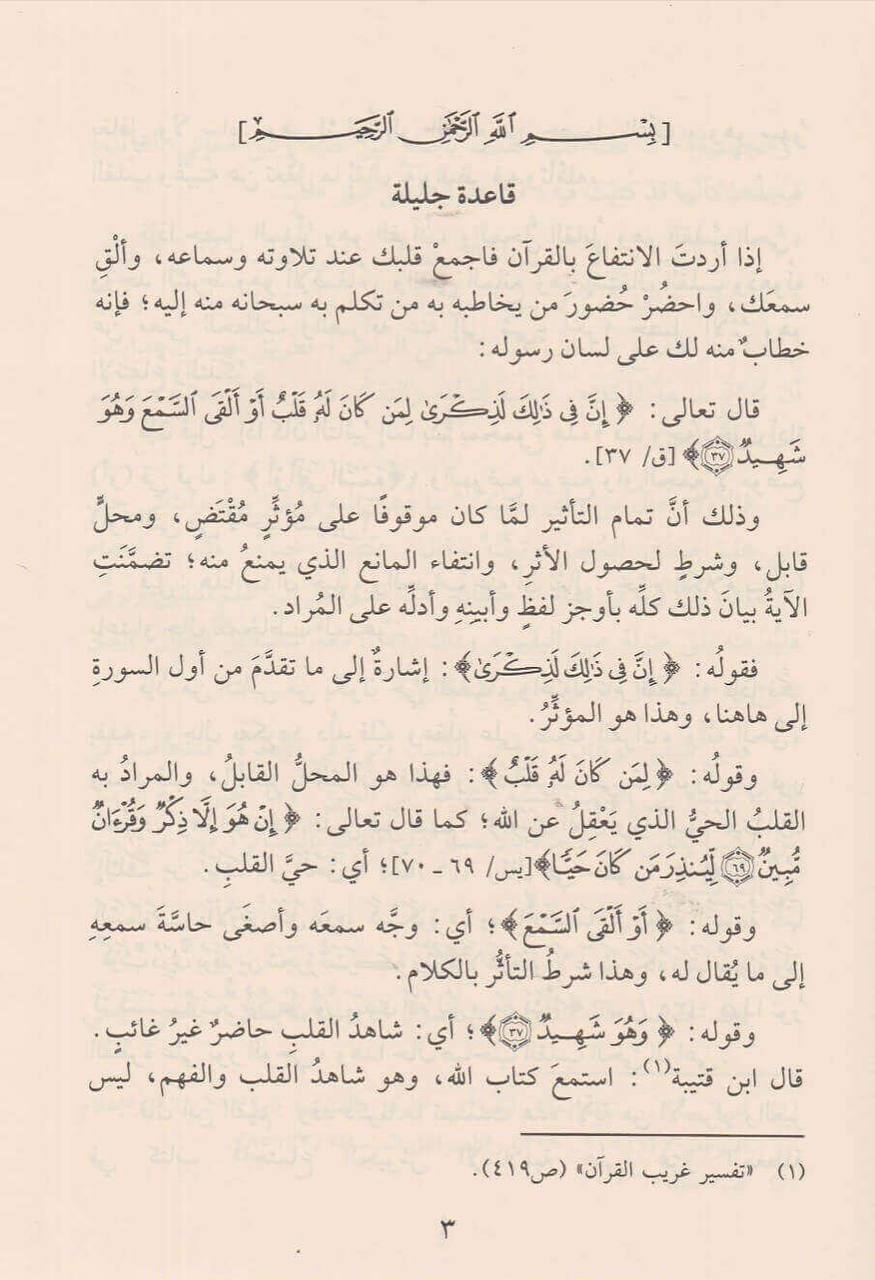 [بِسْمِ اللَّهِ الرَّحْمَٰنِ الرَّحِيمِ]
قاعدة جليلة
إذا أردتَ الانتفاعَ بالقرآن فاجمعْ قلبك عند تلاوته وسماعه، وألْقِ
سمعَك، واحضُرْ حُضورَ من يخاطبه به من تكلم به سبحانه منه إليه؛ فإنه
خطابٌ منه لك على لسان رسوله:
قال تعالى: ﴿إِنَّ فِي ذَٰلِكَ لَذِكْرَىٰ لِمَن كَانَ لَهُۥ قَلْبٌ أَوْ أَلْقَى ٱلسَّمْعَ وَهُوَ
شَهِيدٌ ٣٧﴾ [ق/ ٣٧].
وذلك أنَّ تمام التأثير لمَّا كان موقوفًا على مُؤثِّرٍ مُقْتَضٍ، ومحلٍّ
قابل، وشرطٍ لحصول الأثرِ، وانتفاء المانع الذي يمنعُ منه؛ تضمَّنَتِ
الآيةُ بيانَ ذلك كلِّه بأوجز لفظٍ وأبينِهِ وأدلِّه على المُراد.
فقولُه: ﴿إِنَّ فِي ذَٰلِكَ لَذِكْرَىٰ﴾: إشارةٌ إلى ما تقدَّمَ من أول السورةِ
إلى هاهنا، وهذا هو المؤثِّرُ.
وقولُه: ﴿لِمَن كَانَ لَهُۥ قَلْبٌ﴾: فهذا هو المحلُّ القابلُ، والمرادُ به
القلبُ الحيُّ الذي يَعْقِلُ عن الله؛ كما قال تعالى: ﴿إِنْ هُوَ إِلَّا ذِكْرٌ وَقُرْءَانٌ
مُّبِينٌ ٦٩ لِّيُنذِرَ مَن كَانَ حَيًّا﴾ [يس/ ٦٩ ـ ٧٠]؛ أي: حيَّ القلبِ.
وقوله: ﴿أَوْ أَلْقَى ٱلسَّمْعَ﴾؛ أي: وجَّه سمعَه وأصغَى حاسَّةَ سمعِهِ
إلى ما يُقال له، وهذا شرطُ التأثُّر بالكلام.
وقوله: ﴿وَهُوَ شَهِيدٌ ٣٧﴾؛ أي: شاهدُ القلبِ حاضرٌ غيرُ غائبٍ.
قال ابن قتيبة(١): استمعَ كتاب الله، وهو شاهدُ القلب والفهم، ليس
(١) «تفسير غريب القرآن» (ص٤١٩).
٣